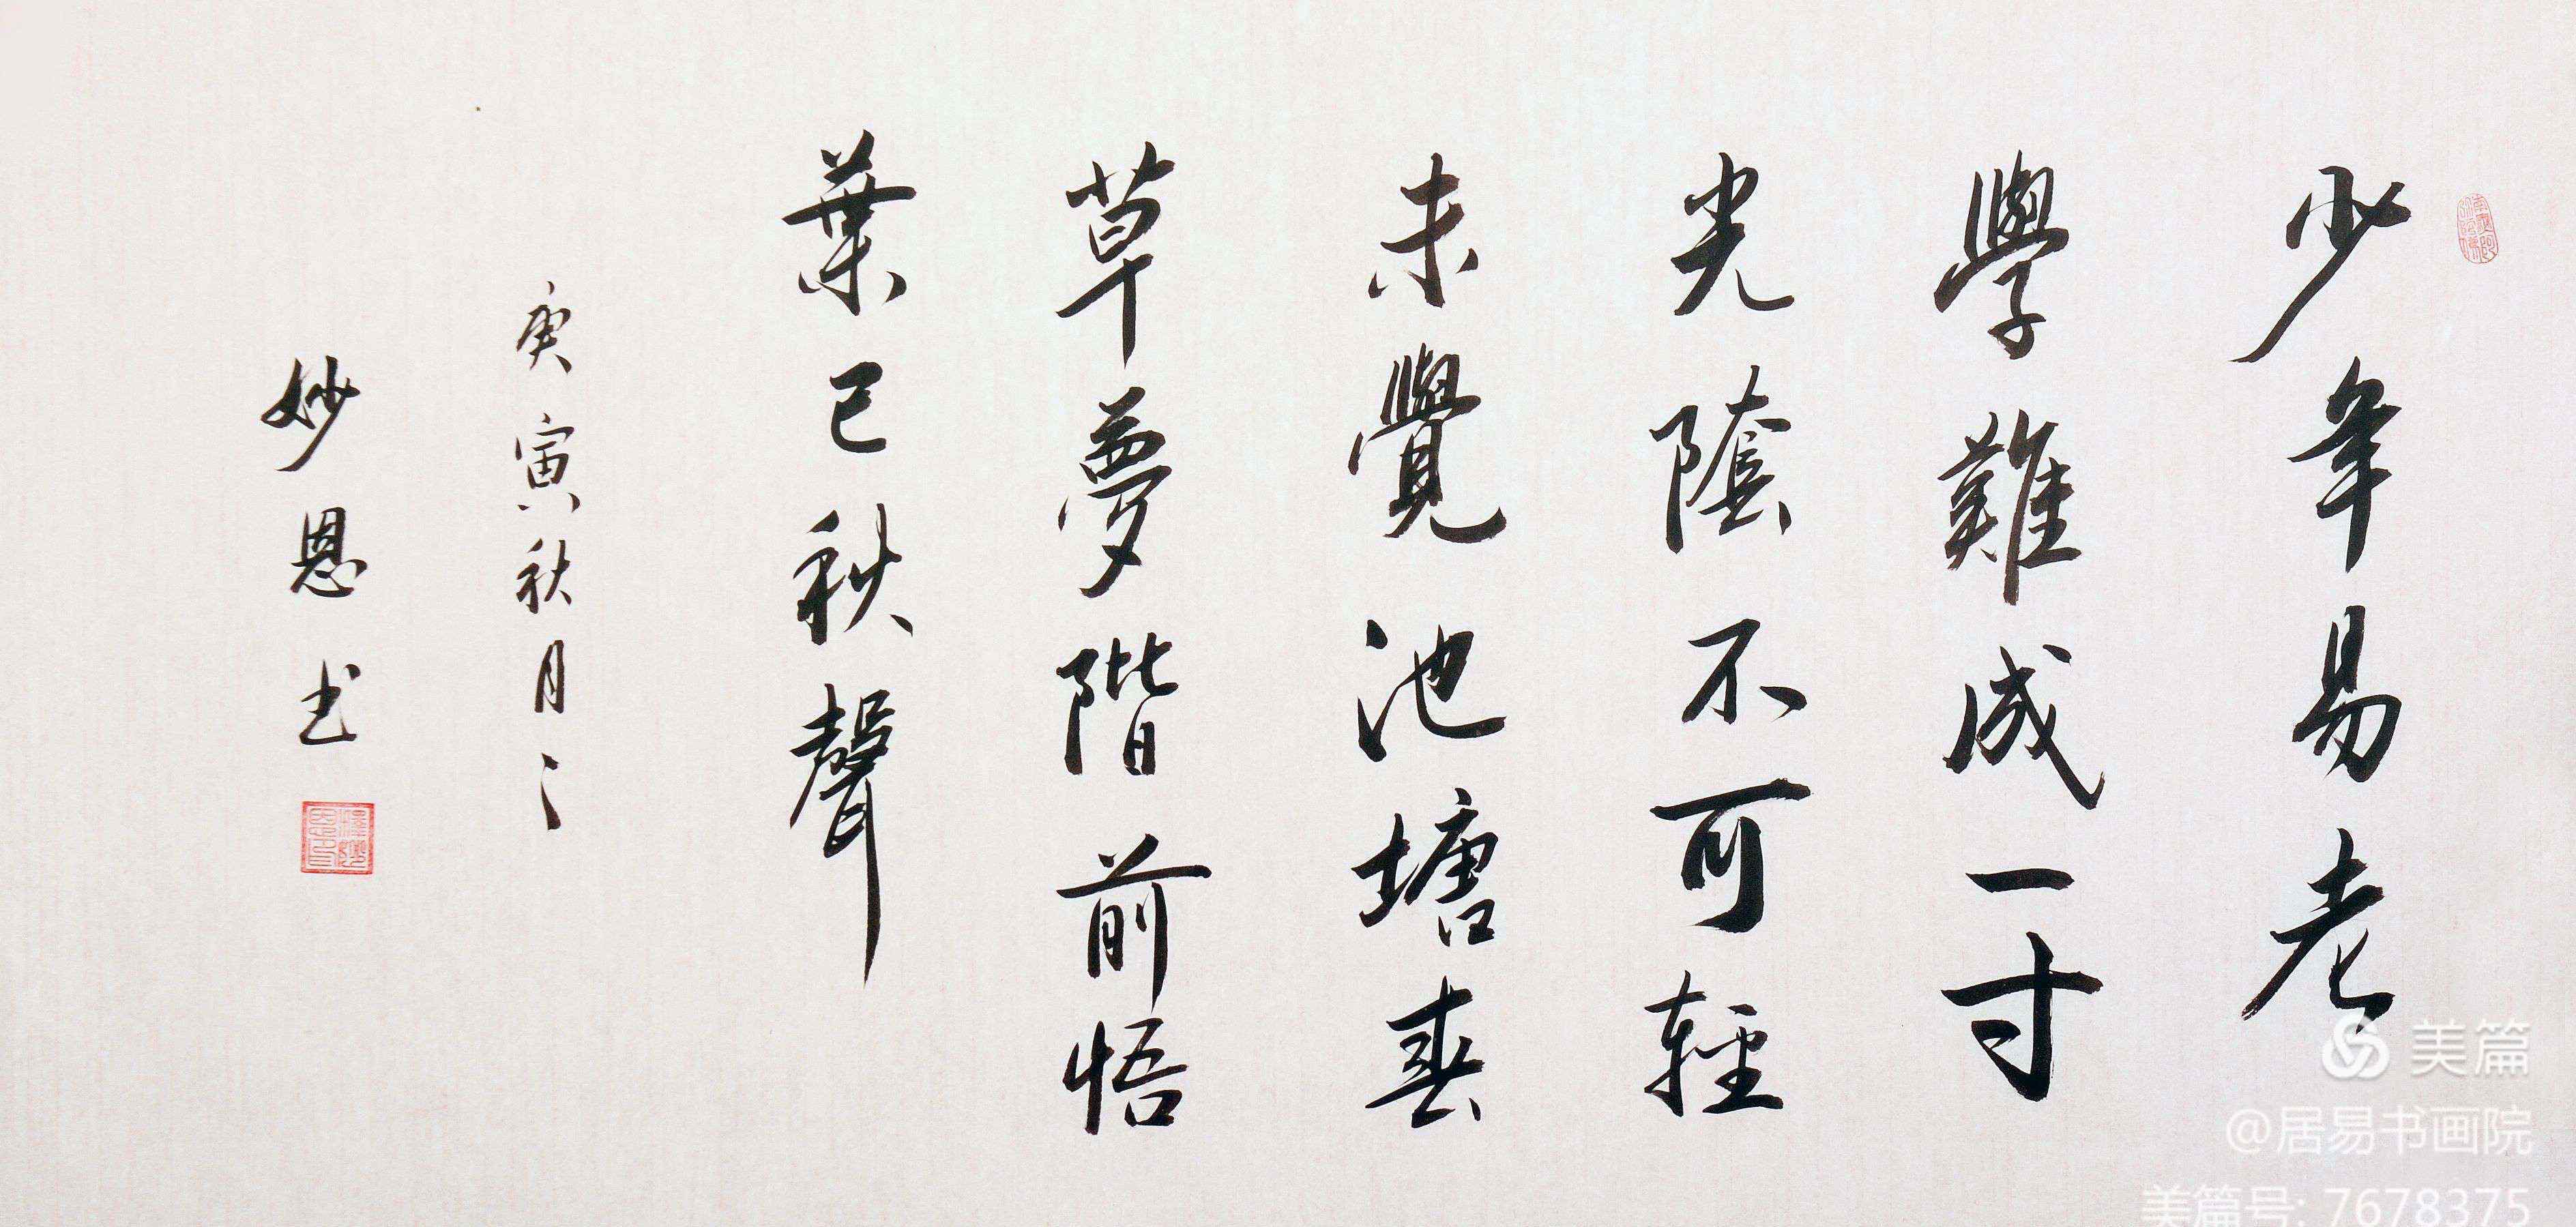 少年易老
學難成一寸
光陰不可輕
未覺池塘春
草夢階前悟
葉已秋聲
庚寅秋月〻
妙恩书
美篇
@居易书画院
美篇号: 7678375